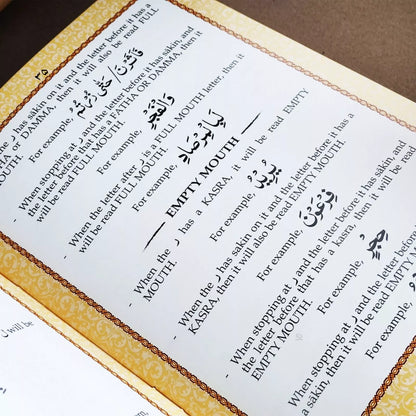 ٣٥
the ر has sākin on it and the letter before it has a
or DAMMA, then it will also be read FULL
For example, قَاۤئِمٌ
- When stopping at ر and the letter before has sākin, and
the letter before that has a FATHA OR DAMMA, then it
will be read FULL MOUTH.
For example, وَالْفَجْرِ
- When the letter after is a FULL MOUTH letter, then it
will be read FULL MOUTH.
For example, لَبِالْمِرْصَادِ
EMPTY MOUTH
- When the ر has a KASRA, it will be read EMPTY
MOUTH.
For example, يُرِيْدُ
- When the ر has sākin on it and the letter before it has a
KASRA, then it will also be read EMPTY MOUTH.
For example, فِرْعَوْنَ
- When stopping at ر and the letter before has sākin, and
the letter before that has a kasra, then it will be read
EMPTY MOUTH.
For example, حِجْرٌ
- When stopping at ر and the letter before
a sākin, then it will be read EMPTY MOUTH
For example,
will be